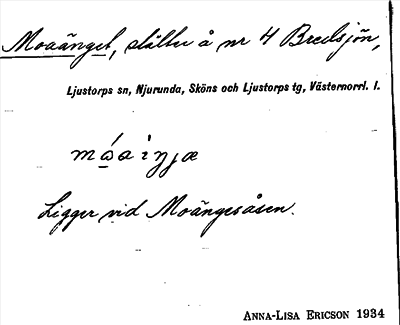 Moaänget, slätter å nr 4 Bredsjön,
Ljustorps sn, Njurunda, Sköns och Ljustorps tg, Västernorrl. l.
Ligger vid Moängesåsen.
ANNA-LISA ERICSON 1934